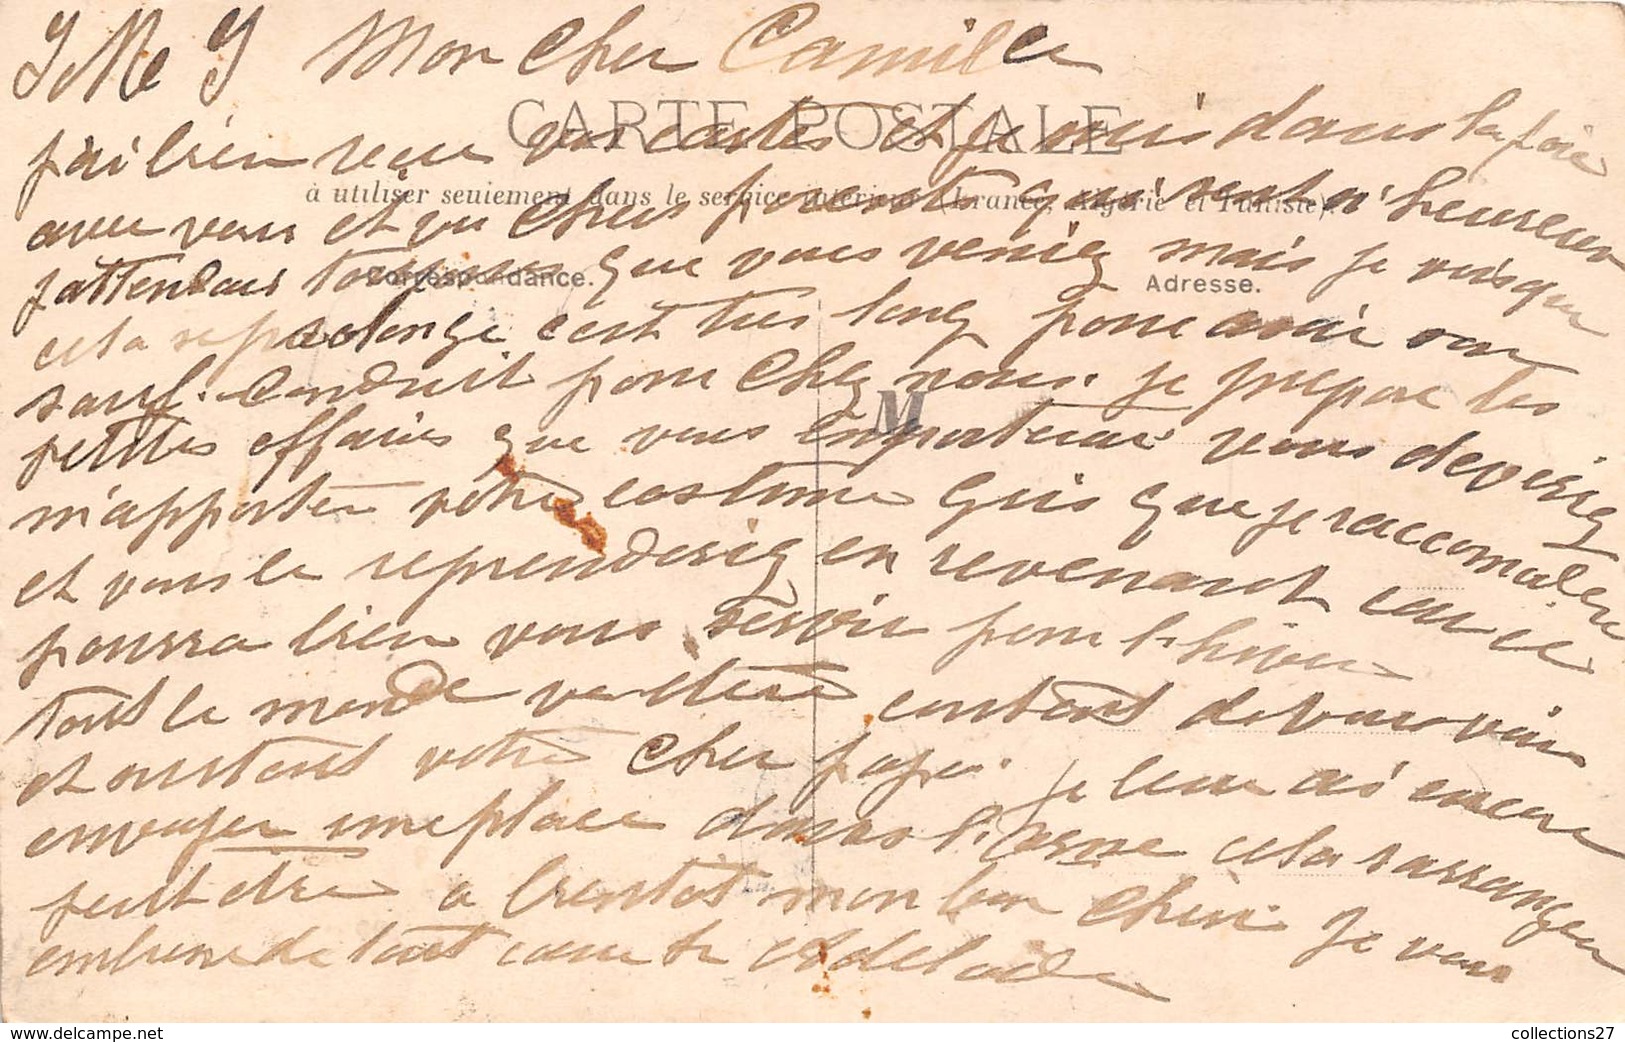 J M J Mon cher Camille
CARTE POSTALE
j'ai bien reçue vos cartes et je suis dans la joie
à utiliser seulement dans le service intérieur (France, Algérie et Tunisie).
avec vous et vu chers parents qui sont si heureux
Correspondance.
Adresse.
j'attendais toujours que vous veniez mais je vois que
cela se prolonge c'est très long pour avoir son
sauf. conduit pour chez nous. je prépare les
M
petites affaires que vous emporterai vous deveriez
m'apporter votre costume gris que je raccomoderai
et vous le reprenderiez en revenant car ce
pourra bien vous servir pour l'hiver
tout le monde va etere content de vous voir
et surtout votre cher papa. je leur ai encore
envoyer une place dans l'Orne cela sarrangera
peut etre a bientot mon bon cheri je vous
embrasse de tout coeur Adelaide
www.delcampe.net
collections27